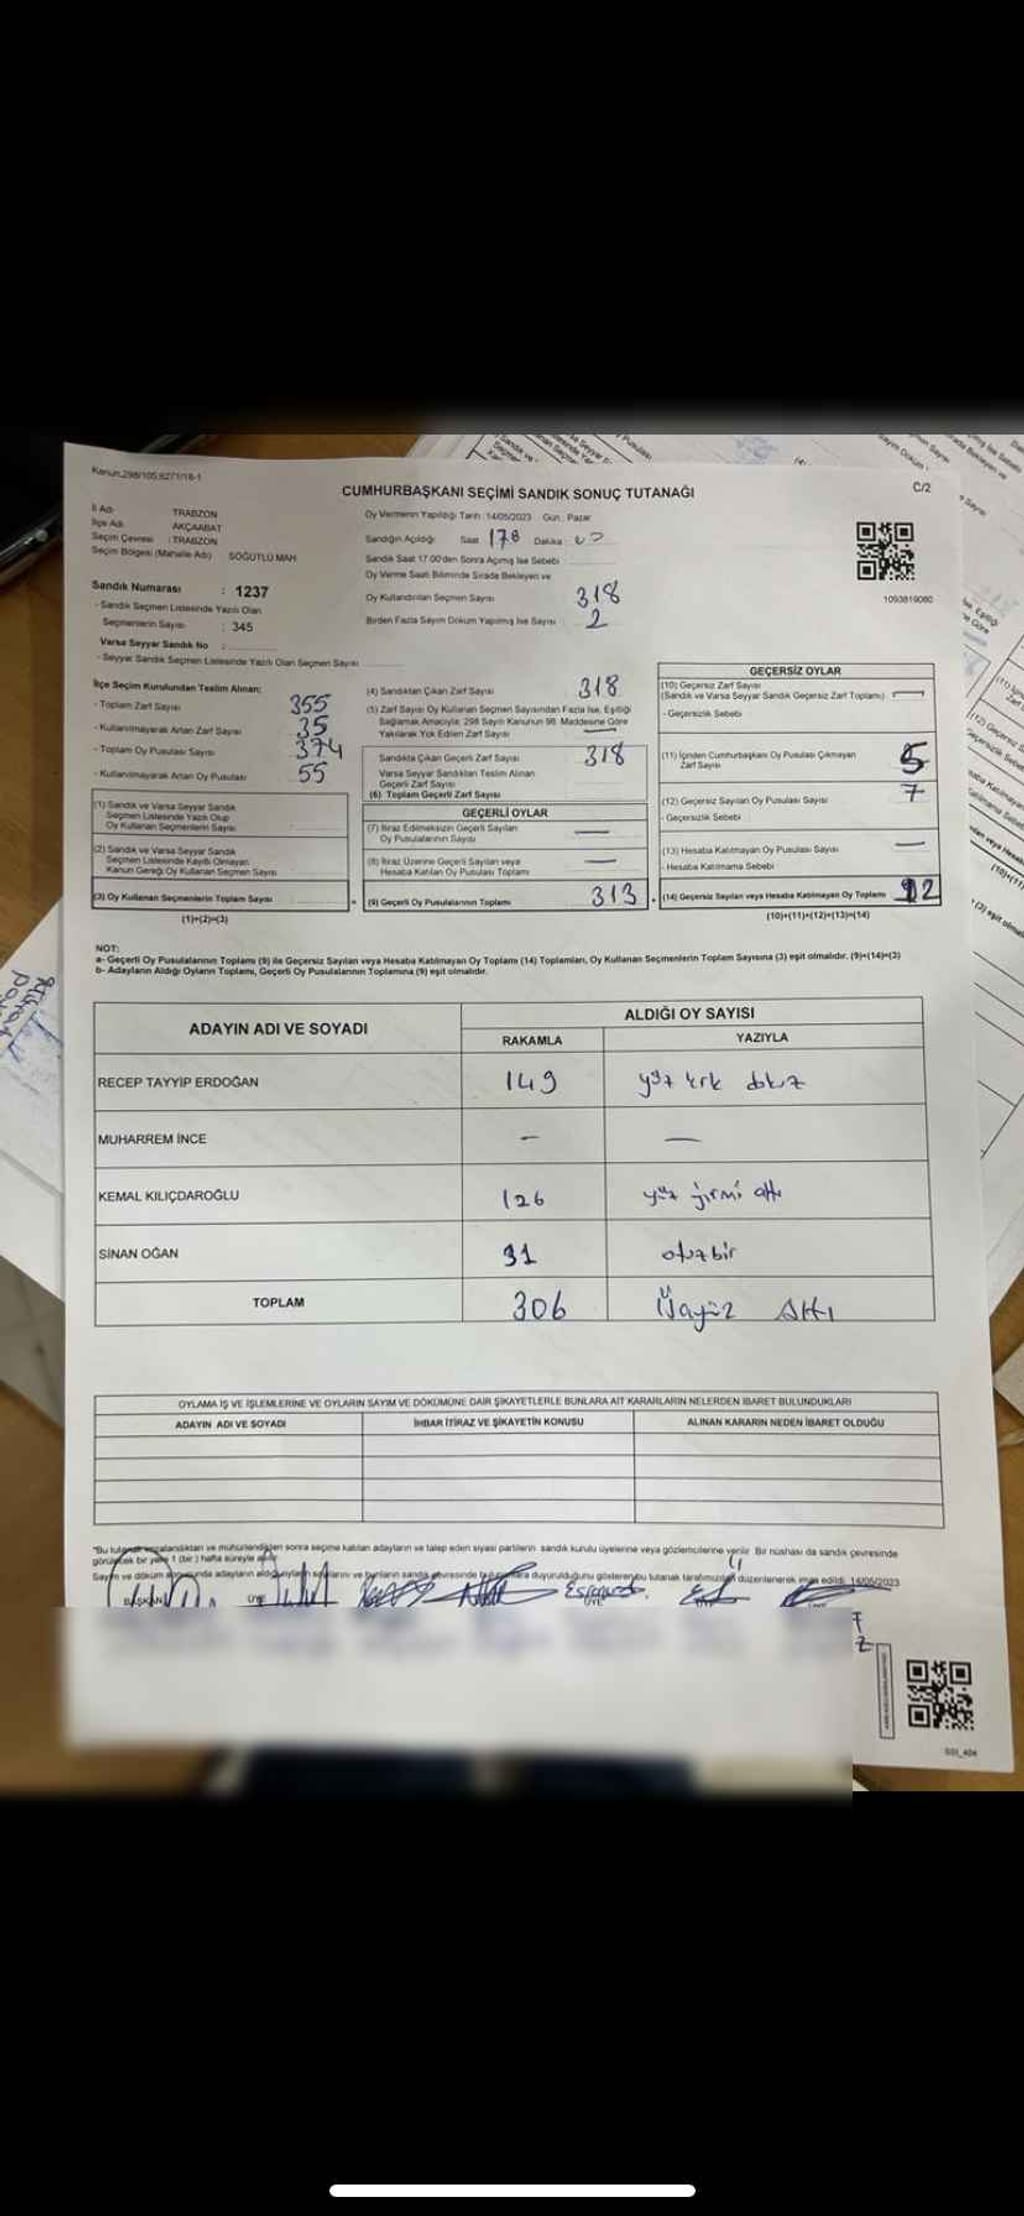 Kanun,298/105,6271/18-1
C/2
CUMHURBAŞKANI SEÇİMİ SANDIK SONUÇ TUTANAĞI
İl Adı : TRABZON
İlçe Adı : AKÇAABAT
Seçim Çevresi : TRABZON
Seçim Bölgesi (Mahalle Adı) SOĞUTLU MAH
Sandık Numarası : 1237
- Sandık Seçmen Listesinde Yazılı Olan
Seçmenlerin Sayısı : 345
Varsa Seyyar Sandık No :
- Seyyar Sandık Seçmen Listesinde Yazılı Olan Seçmen Sayısı
Oy Vermenin Yapıldığı Tarih : 14/05/2023 Gün : Pazar
Sandığın Açıldığı Saat Dakika
Sandık Saat 17.00'den Sonra Açılmış İse Sebebi
Oy Verme Saati Bitiminde Sırada Bekleyen ve
Oy Kullandırılan Seçmen Sayısı 318
Birden Fazla Sayım Döküm Yapılmış İse Sayısı 2
1093819080
İlçe Seçim Kurulundan Teslim Alınan:
- Toplam Zarf Sayısı 355
- Kullanılmayarak Artan Zarf Sayısı 35
- Toplam Oy Pusulası Sayısı 374
- Kullanılmayarak Artan Oy Pusulası 55
(1) Sandık ve Varsa Seyyar Sandık
Seçmen Listesinde Yazılı Olup
Oy Kullanan Seçmenlerin Sayısı
(2) Sandık ve Varsa Seyyar Sandık
Seçmen Listesinde Kayıtlı Olmayan
Kanun Gereği Oy Kullanan Seçmen Sayısı
(3) Oy Kullanan Seçmenlerin Toplam Sayısı
(1)+(2)=(3)
(4) Sandıktan Çıkan Zarf Sayısı 318
(5) Zarf Sayısı Oy Kullanan Seçmen Sayısından Fazla İse, Eşitliği
Sağlamak Amacıyla; 298 Sayılı Kanunun 98. Maddesine Göre
Yakılarak Yok Edilen Zarf Sayısı —
Sandıkta Çıkan Geçerli Zarf Sayısı 318
Varsa Seyyar Sandıktan Teslim Alınan
Geçerli Zarf Sayısı
(6) Toplam Geçerli Zarf Sayısı
GEÇERLİ OYLAR
(7) İtiraz Edilmeksizin Geçerli Sayılan
Oy Pusulalarının Sayısı —
(8) İtiraz Üzerine Geçerli Sayılan veya
Hesaba Katılan Oy Pusulası Toplamı —
(9) Geçerli Oy Pusulalarının Toplamı 313
GEÇERSİZ OYLAR
(10) Geçersiz Zarf Sayısı
(Sandık ve Varsa Seyyar Sandık Geçersiz Zarf Toplamı) —
- Geçersizlik Sebebi
(11) İçinden Cumhurbaşkanı Oy Pusulası Çıkmayan
Zarf Sayısı 5
(12) Geçersiz Sayılan Oy Pusulası Sayısı 7
- Geçersizlik Sebebi
(13) Hesaba Katılmayan Oy Pusulası Sayısı —
- Hesaba Katılmama Sebebi
(14) Geçersiz Sayılan veya Hesaba Katılmayan Oy Toplamı 12
(10)+(11)+(12)+(13)=(14)
NOT:
a- Geçerli Oy Pusulalarının Toplamı (9) ile Geçersiz Sayılan veya Hesaba Katılmayan Oy Toplamı (14) Toplamları, Oy Kullanan Seçmenlerin Toplam Sayısına (3) eşit olmalıdır. (9)+(14)=(3)
b- Adayların Aldığı Oyların Toplamı, Geçerli Oy Pusulalarının Toplamına (9) eşit olmalıdır.
ADAYIN ADI VE SOYADI ALDIĞI OY SAYISI
RAKAMLA YAZIYLA
RECEP TAYYİP ERDOĞAN 149 yüz kırk dokuz
MUHARREM İNCE — —
KEMAL KILIÇDAROĞLU 126 yüz yirmi altı
SİNAN OĞAN 31 otuzbir
TOPLAM 306 Üçyüz Altı
OYLAMA İŞ VE İŞLEMLERİNE VE OYLARIN SAYIM VE DÖKÜMÜNE DAİR ŞİKAYETLERLE BUNLARA AİT KARARLARIN NELERDEN İBARET BULUNDUKLARI
ADAYIN ADI VE SOYADI İHBAR İTİRAZ VE ŞİKAYETİN KONUSU ALINAN KARARIN NEDEN İBARET OLDUĞU
"Bu tutanak imzalandıktan ve mühürlendikten sonra seçime katılan adayların ve talep eden siyasi partilerin sandık kurulu üyelerine veya gözlemcilerine verilir. Bir nüshası da sandık çevresinde
görülecek bir yere 1 (bir) hafta süreyle asılır.
Sayım ve döküm sonucunda adayların aldığı oyların sayılarını ve bunların sandık çevresinde duyurulduğunu gösteren bu tutanak tarafımızdan düzenlenerek imza edildi. 14/05/2023
BAŞKAN ÜYE ÜYE